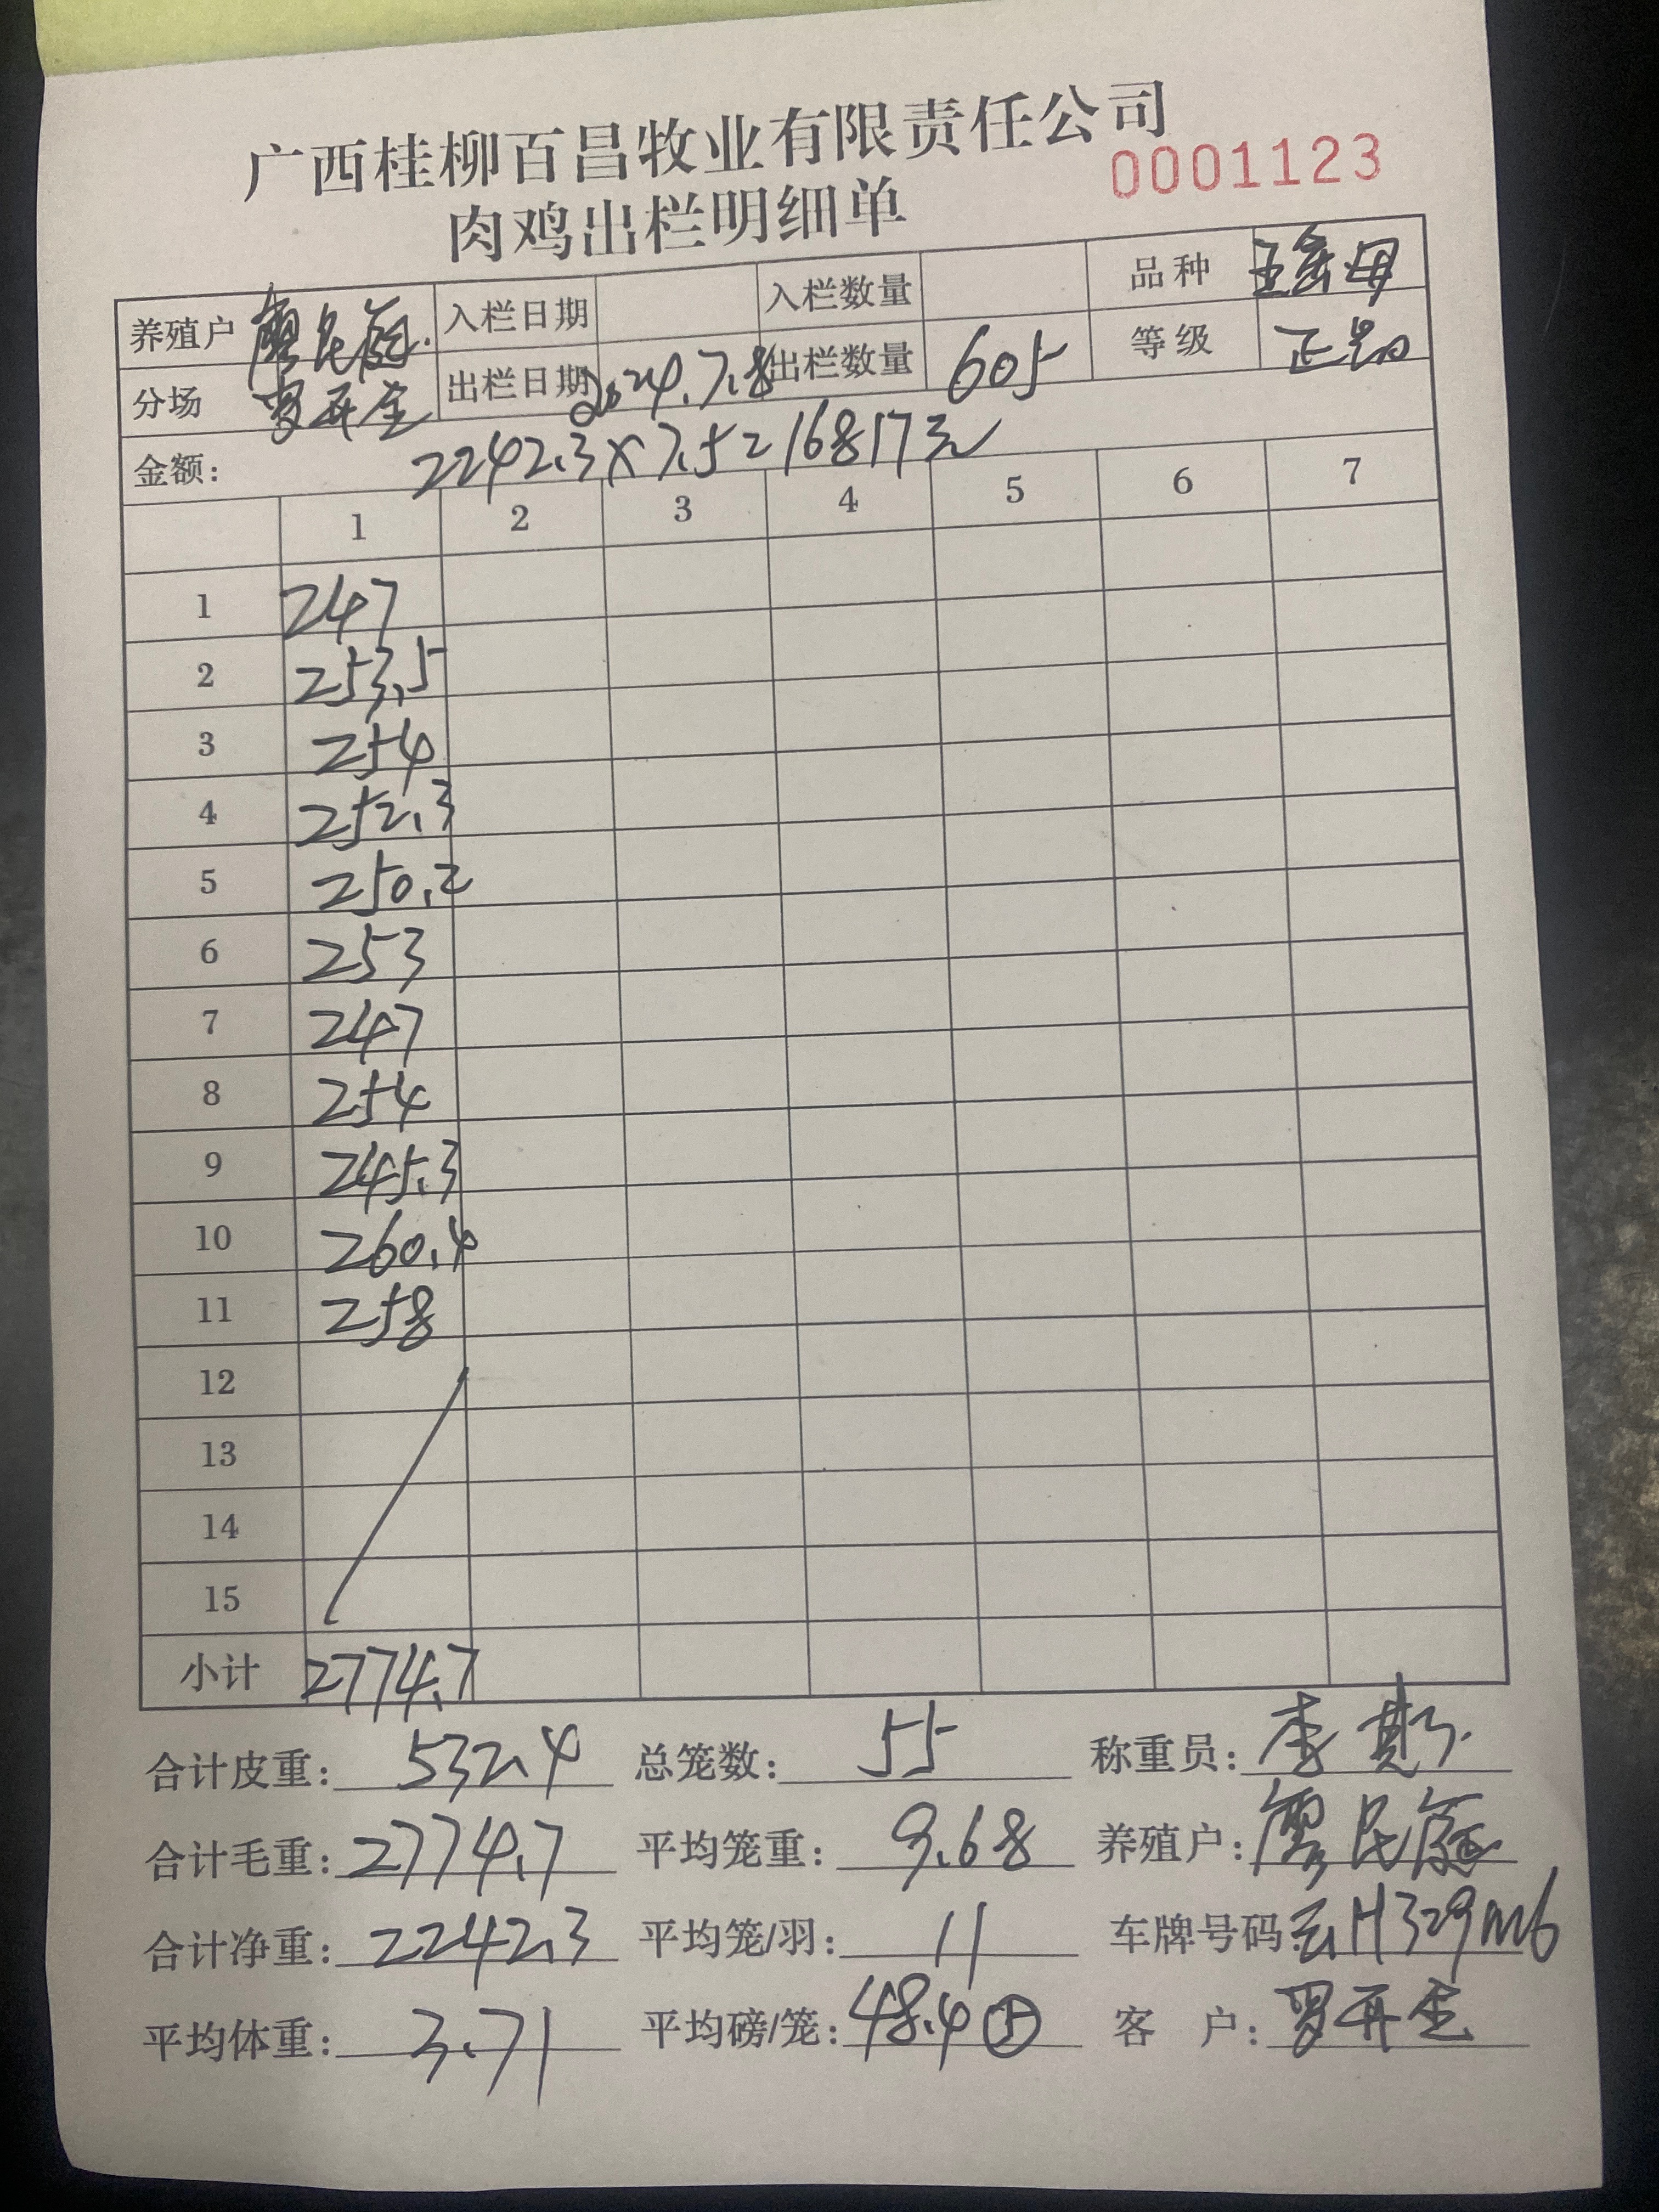 广西桂柳百昌牧业有限责任公司
0001123
肉鸡出栏明细单
养殖户 廖民庭 入栏日期 入栏数量 品种
分场 罗开全 出栏日期 2024.7.8 出栏数量 605 等级 正品
金额: 2242.3×7.5=16817元
1 2 3 4 5 6 7
1 247
2 253.5
3 254
4 252.3
5 250.2
6 253
7 247
8 254
9 245.3
10 260.4
11 258
12
13
14
15
小计 2774.7
合计皮重: 532.4 总笼数: 55 称重员: 李
合计毛重: 2774.7 平均笼重: 9.68 养殖户: 廖民庭
合计净重: 2242.3 平均笼/羽: 11 车牌号码: 云H329M6
平均体重: 3.71 平均磅/笼: 48.4 客 户: 罗开全